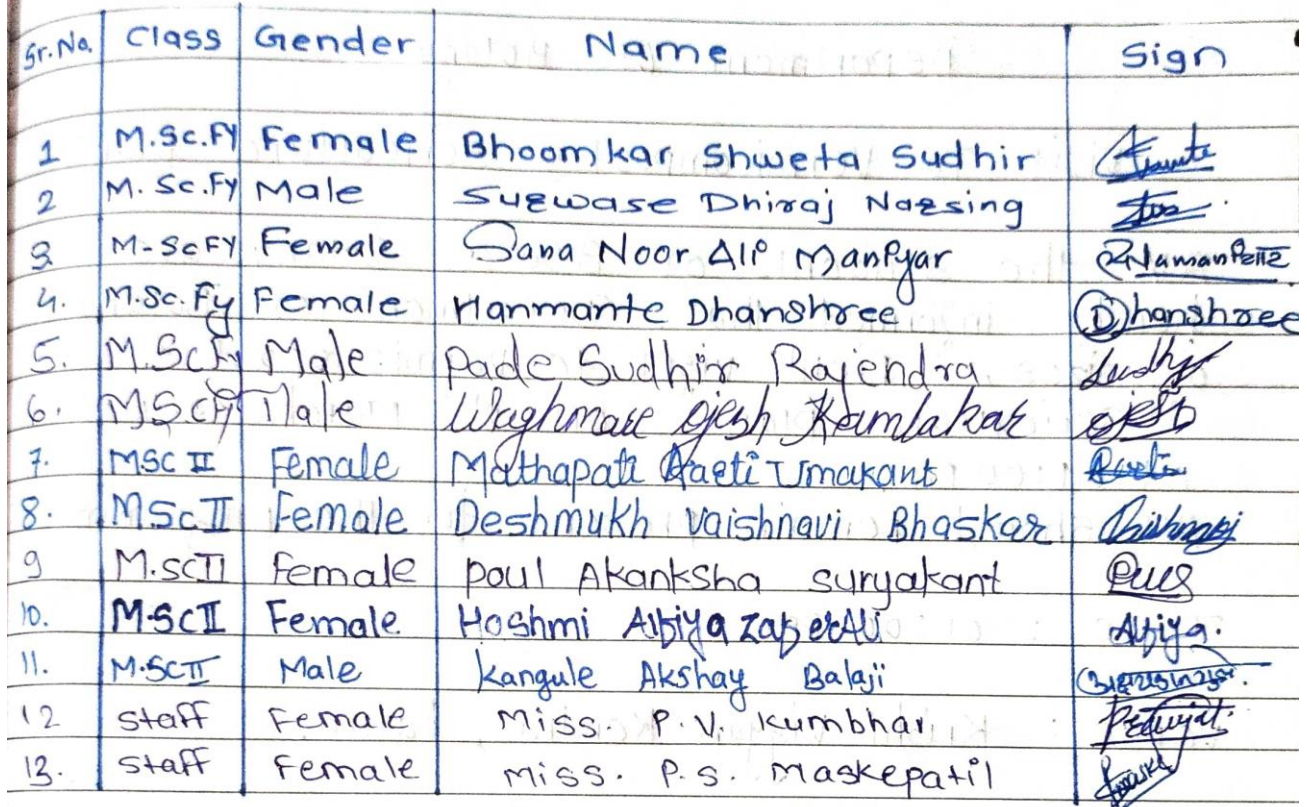 Sr.No. Class Gender Name Sign
1 M.Sc.Fy Female Bhoomkar Shweta Sudhir
2 M.Sc.Fy Male Surwase Dhiraj Narsing
3. M-ScFY Female Sana Noor Ali Maniyar
4. M.Sc.Fy Female Hanmante Dhanshree Dhanshree
5. M.ScFy Male Pade Sudhir Rajendra Sudhir
6. MScfy Male Waghmare Ojesh Kamlakar Ojesh
7. MSC II Female Mathapati Aarti Umakant
8. MSc II Female Deshmukh Vaishnavi Bhaskar Vaishnavi
9 M.scII Female Poul Akanksha suryakant
10. M.SCII Female Hashmi Alfiya ZaferAli Alfiya.
11. M.SCII Male Kangule Akshay Balaji
12 Staff Female Miss. P.V. Kumbhar
13. Staff Female Miss. P.S. Maskepatil